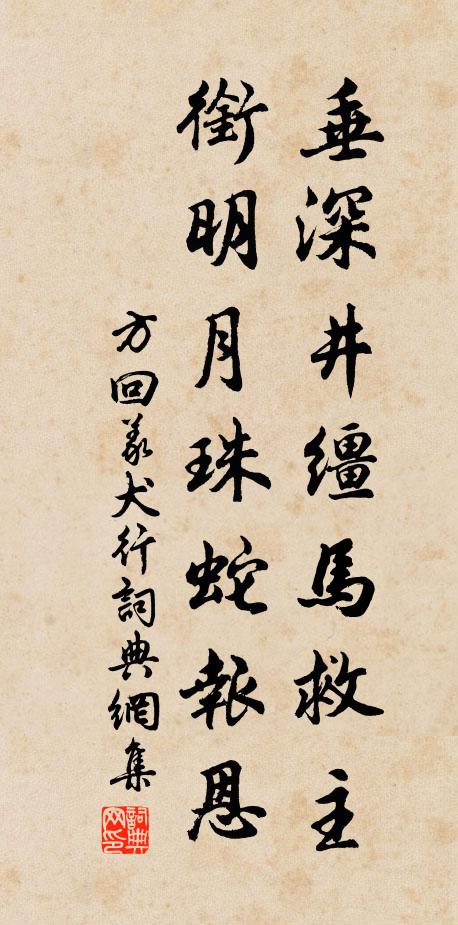 垂深井繮馬救主
銜明月珠蛇報恩
方回義犬行詞典網集
詞典网印